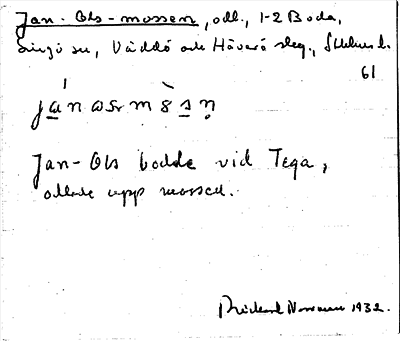 Jan-Ols-mossen, odl., 1-2 Boda,
Singö sn, Väddö och Häverö slg., Sthlms l.
61
Jan-Ols bodde vid Tega,
odlade upp mossen.
Rickard Norman 1932.